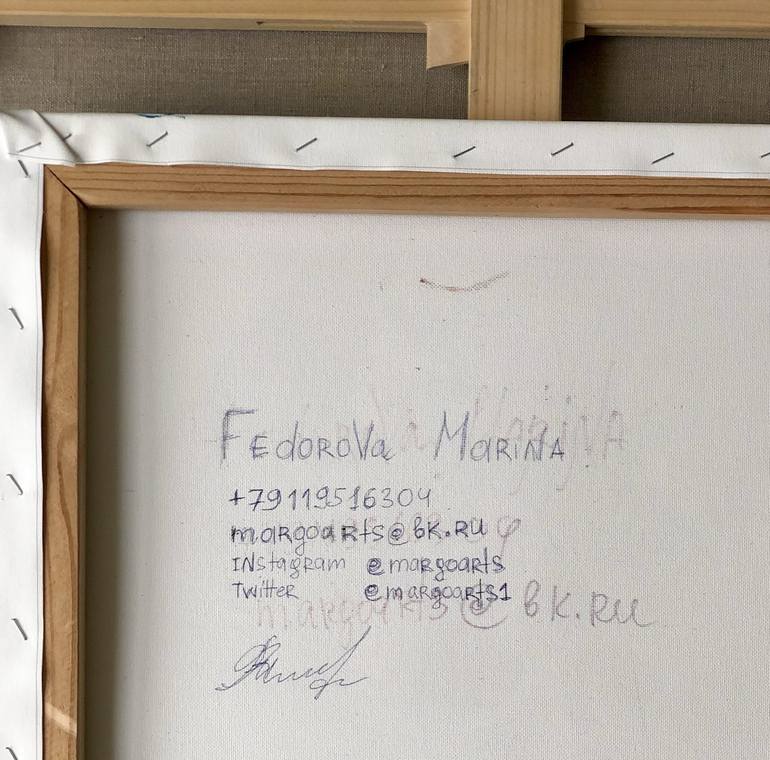 Fedorova Marina
+79119516304
margoarts@bk.ru
Instagram @margoarts
Twitter @margoarts1
margoarts@bk.ru